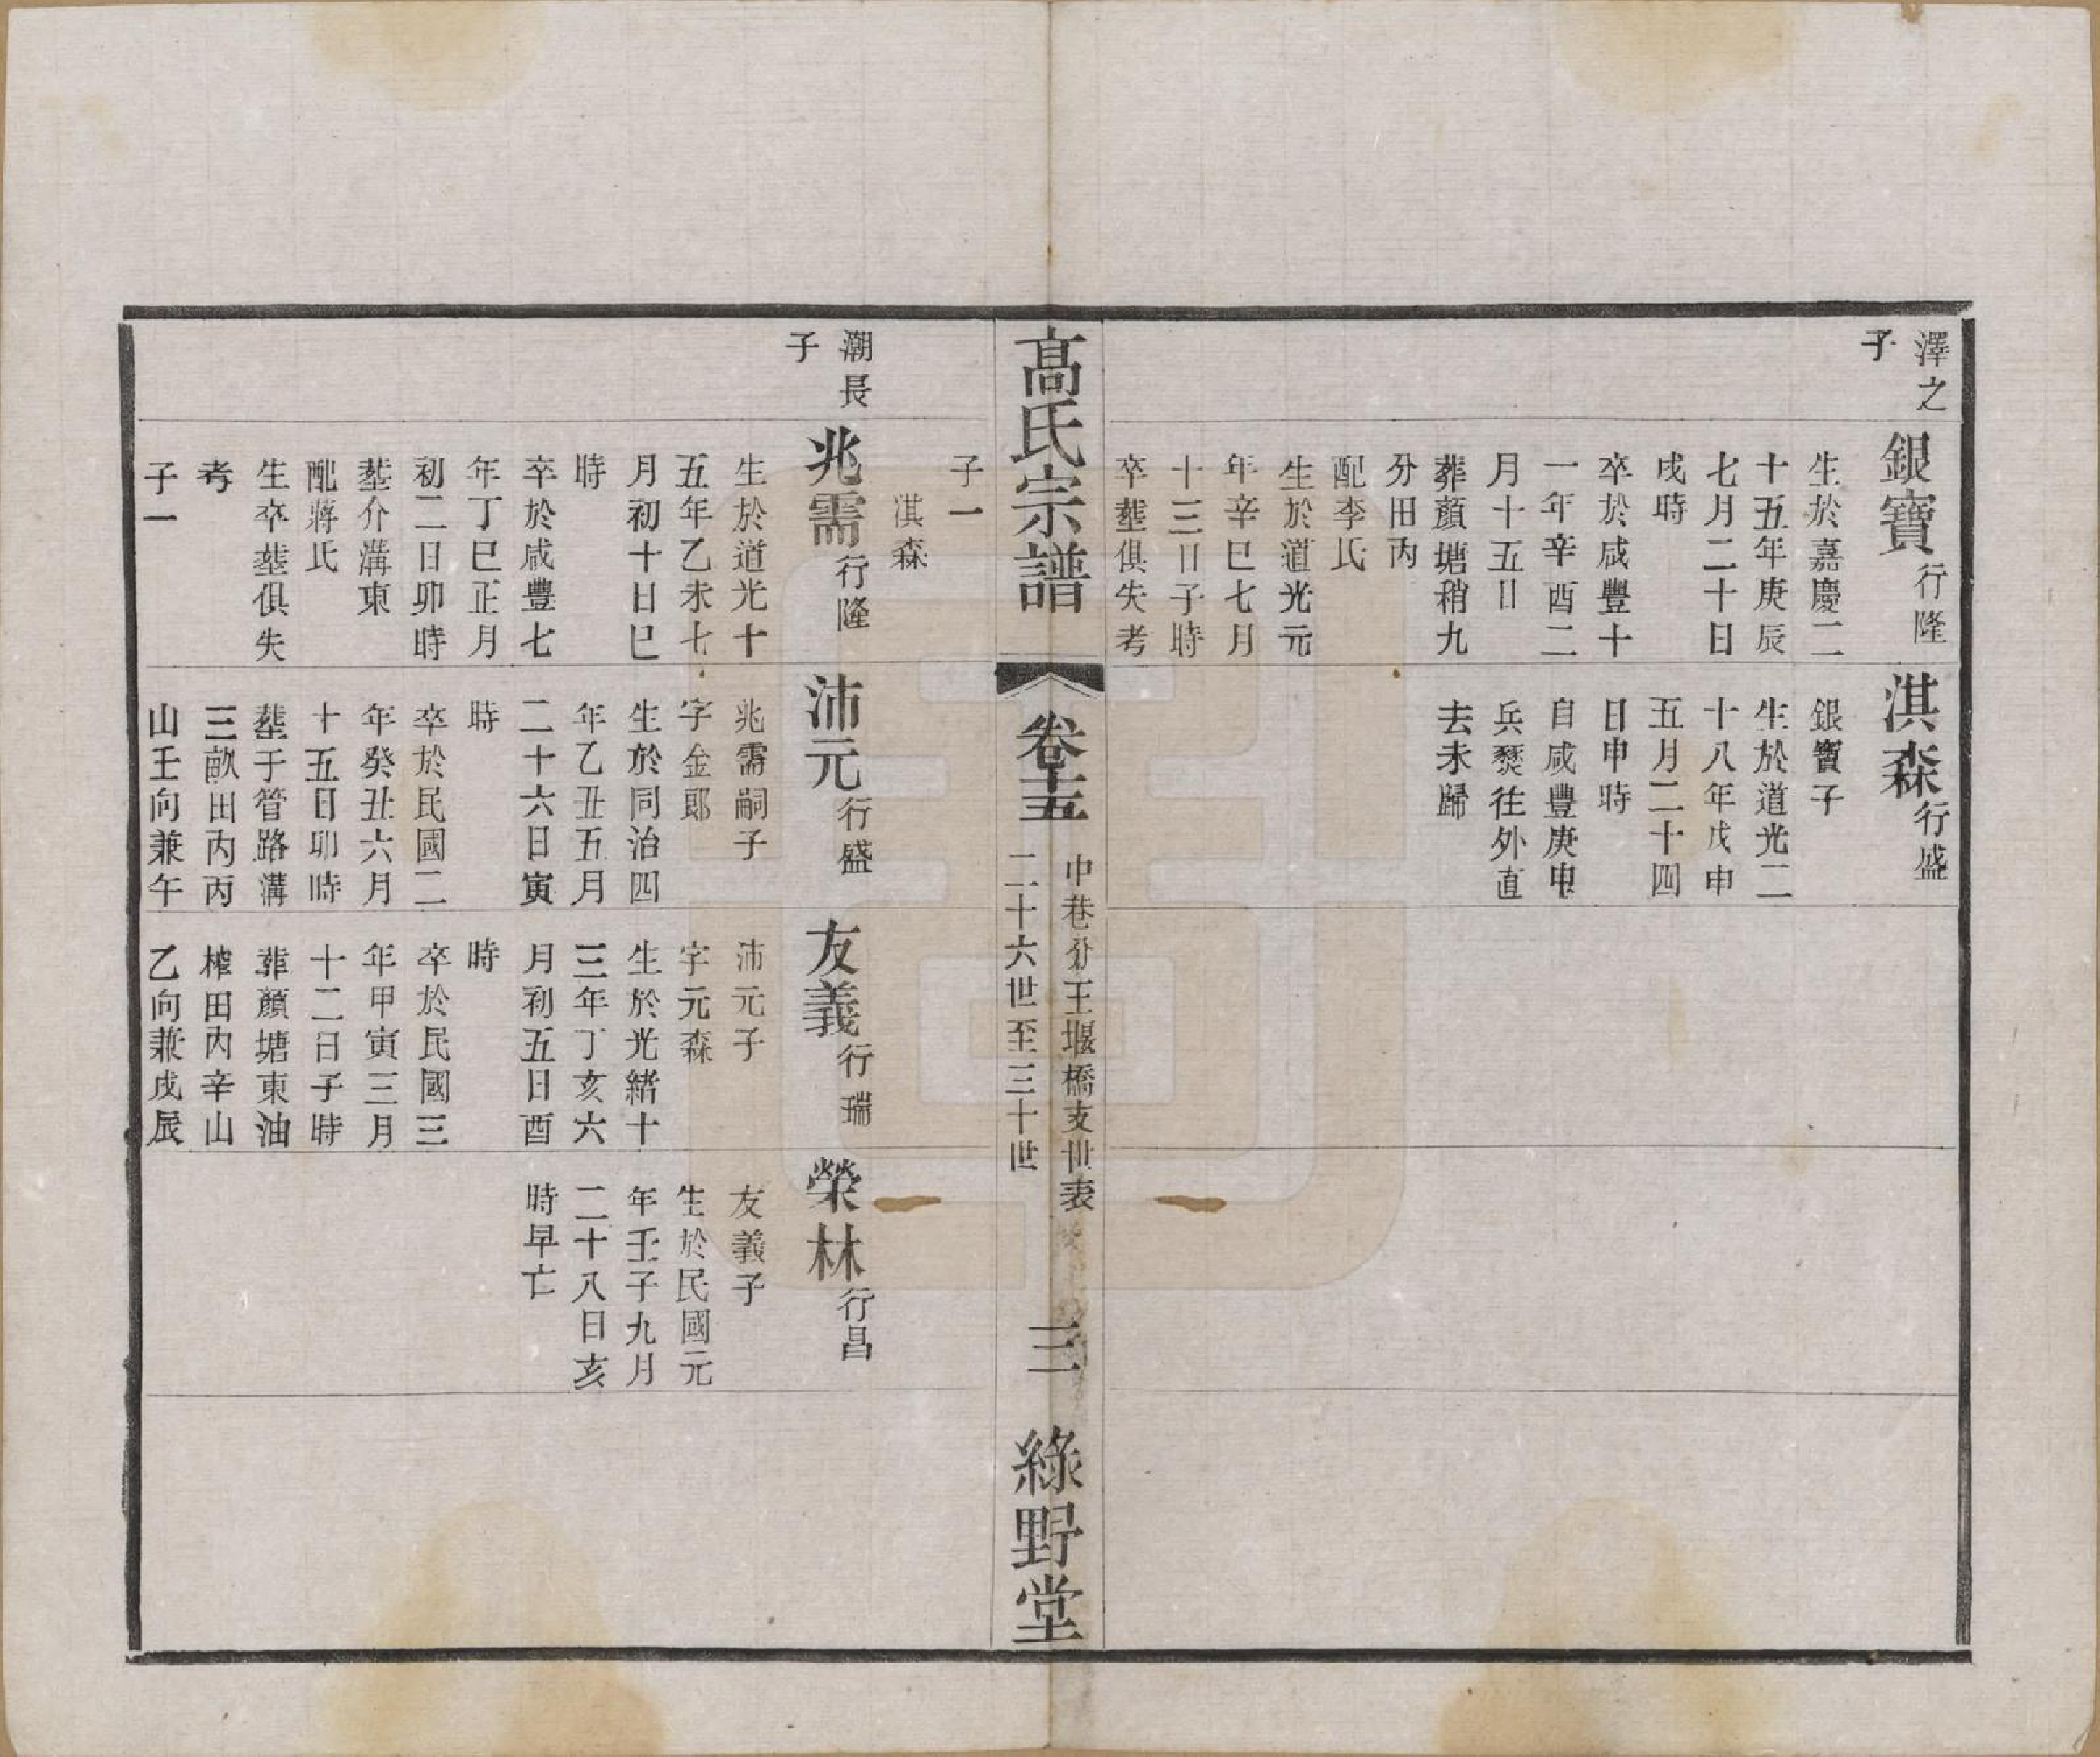 澤之
子
銀寶行隆
生於嘉慶二
十五年庚辰
七月二十日
戌時
卒於咸豐十
一年辛酉二
月十五日
葬顏塘稍九
分田內
配李氏
生於道光元
年辛巳七月
十三日子時
卒塟俱失考
子一
淇森
淇森行盛
銀寶子
生於道光二
十八年戊申
五月二十四
日申時
自咸豐庚申
兵燹往外直
去未歸
高氏宗譜
卷十五
中巷分王堰橋支世表
二十六世至三十世
三
綠野堂
潮長
子
兆需行隆
生於道光十
五年乙未七
月初十日巳
時
卒於咸豐七
年丁巳正月
初二日卯時
塟介溝東
配蔣氏
生卒塟俱失
考
子一
沛元行盛
兆需嗣子
字金郎
生於同治四
年乙丑五月
二十六日寅
時
卒於民國二
年癸丑六月
十五日卯時
塟于管路溝
三畝田內丙
山壬向兼午
友義行瑞
沛元子
字元森
生於光緒十
三年丁亥六
月初五日酉
時
卒於民國三
年甲寅三月
十二日子時
葬顏塘東油
榨田內辛山
乙向兼戌辰
榮林行昌
友義子
生於民國元
年壬子九月
二十八日亥
時早亡